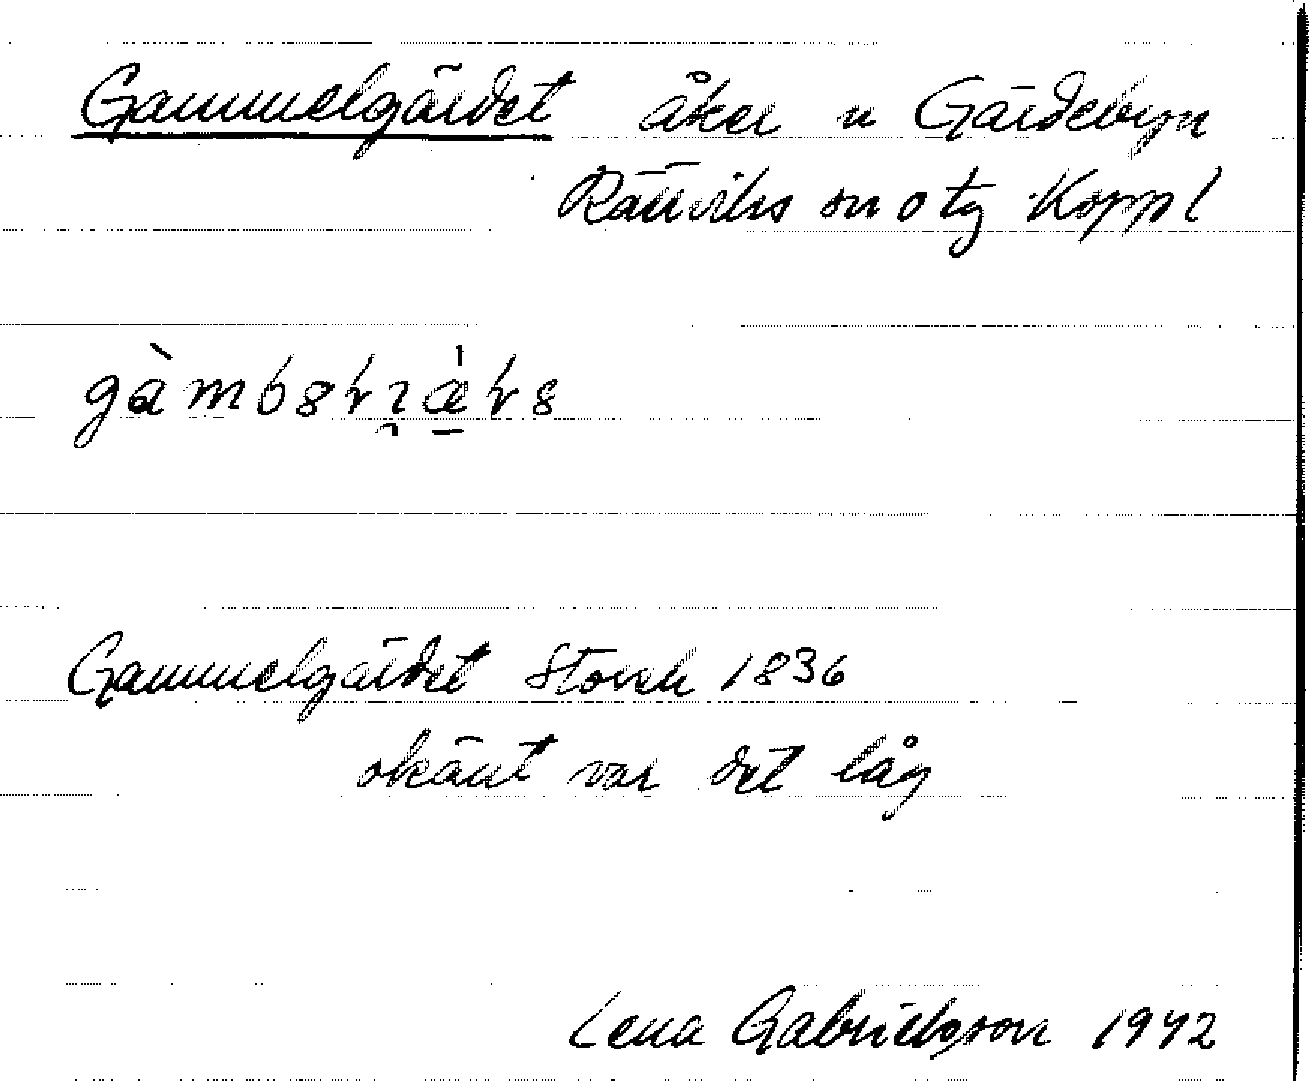 Gammelgärdet åker u Gärdebyn
Rättviks sn o tg Koppl
Gammelgärdet Storsk 1836
okänt var det låg
Lena Gabrielsson 1942